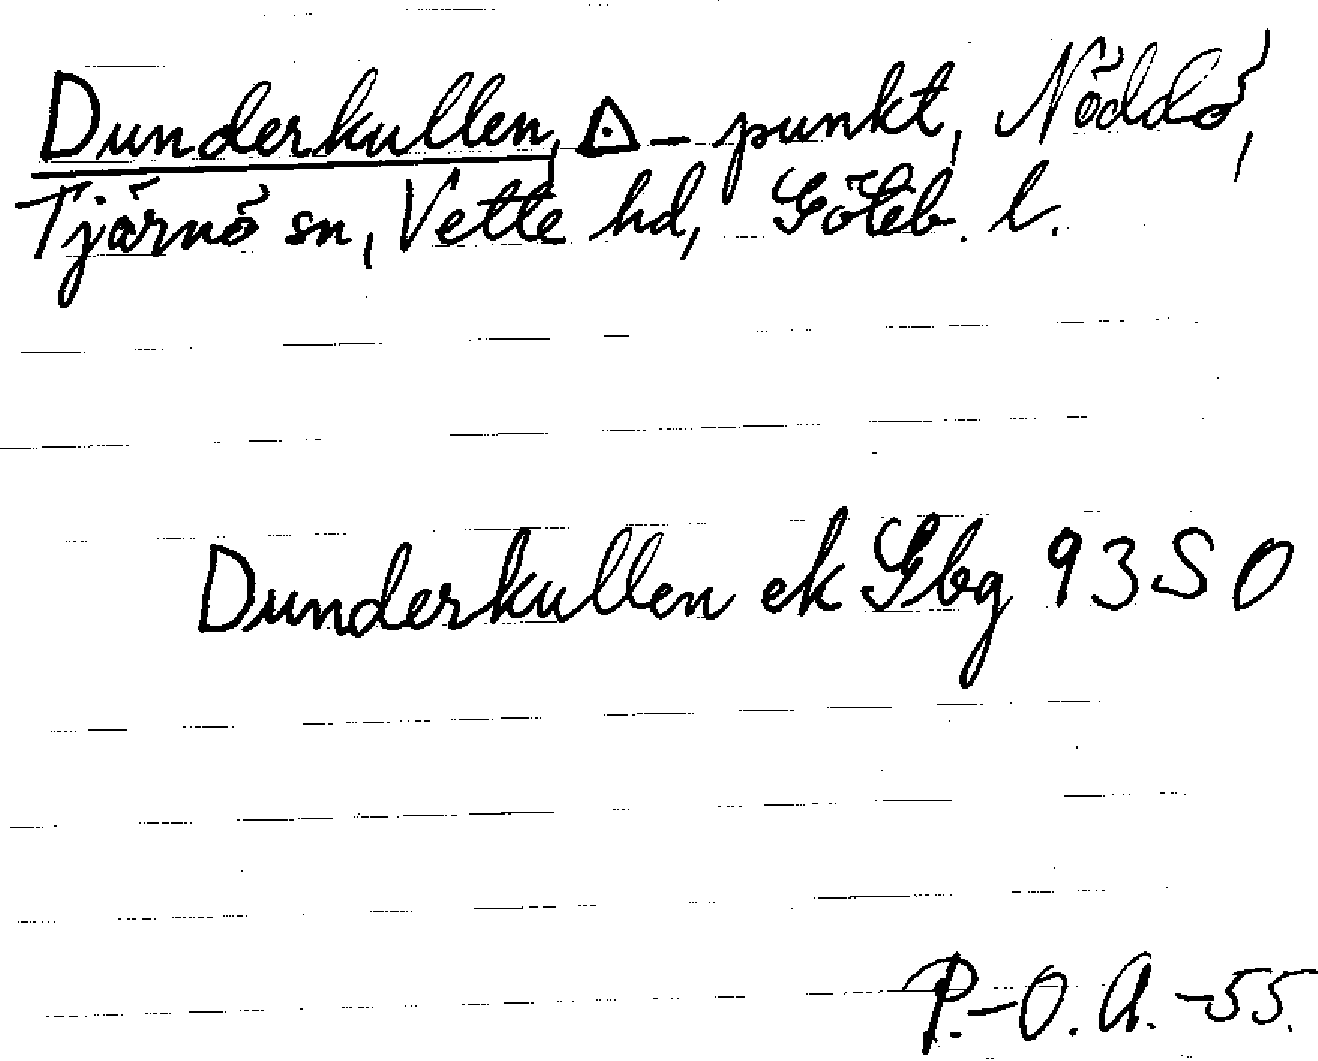 Dunderkullen, △-punkt, Nöddö,
Tjärnö sn, Vette hd, Göteb. l.
Dunderkullen ek Gbg 93 SO
P.-O. A. -55.